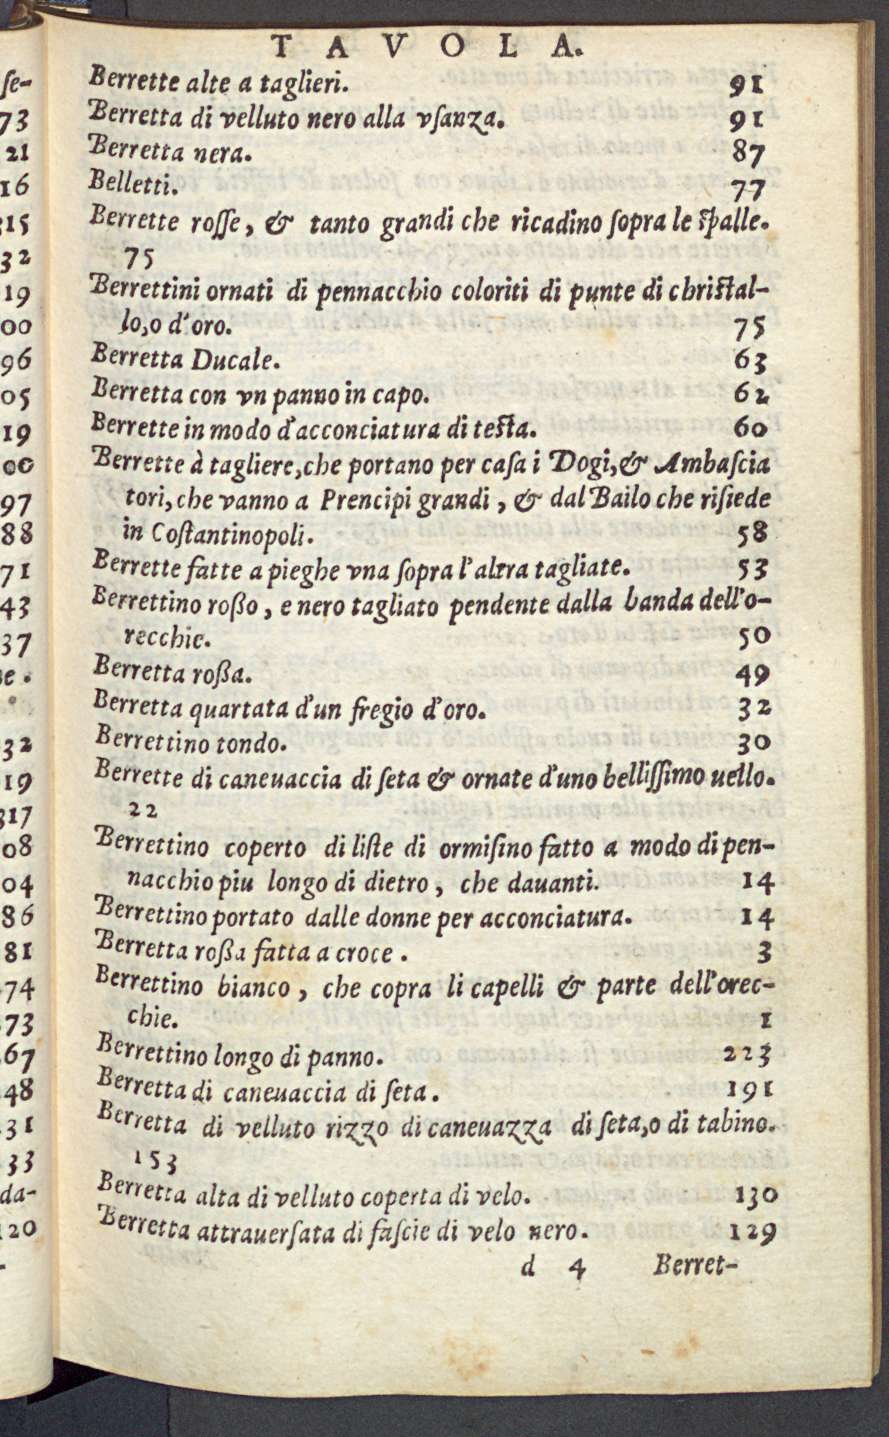 TAVOLA.
Berrette alte a taglieri. 91
Berretta di velluto nero alla vſanza. 91
Berretta nera. 87
Belletti. 77
Berrette roſſe, & tanto grandi che ricadino ſopra le ſpalle.
75
Berrettini ornati di pennacchio coloriti di punte di chriſtal-
lo,o d'oro. 75
Berretta Ducale. 63
Berretta con vn panno in capo. 62
Berrette in modo d'acconciatura di teſta. 60
Berrette à tagliere,che portano per caſa i Dogi,& Ambaſcia
tori,che vanno a Prencipi grandi, & dal Bailo che riſiede
in Coſtantinopoli. 58
Berrette fatte a pieghe vna ſopra l'altra tagliate. 53
Berrettino roßo, e nero tagliato pendente dalla banda dell'o-
recchie. 50
Berretta roßa. 49
Berretta quartata d'un fregio d'oro. 32
Berrettino tondo. 30
Berrette di caneuaccia di ſeta & ornate d'uno belliſſimo uello.
22
Berrettino coperto di liſte di ormiſino fatto a modo di pen-
nacchio piu longo di dietro, che dauanti. 14
Berrettino portato dalle donne per acconciatura. 14
Berretta roßa fatta a croce. 3
Berrettino bianco, che copra li capelli & parte dell'orec-
chie. 1
Berrettino longo di panno. 223
Berretta di caneuaccia di ſeta. 191
Berretta di velluto rizzo di caneuazza di ſeta,o di tabino.
153
Berretta alta di velluto coperta di velo. 130
Berretta attrauerſata di faſcie di velo nero. 129
d 4 Berret-